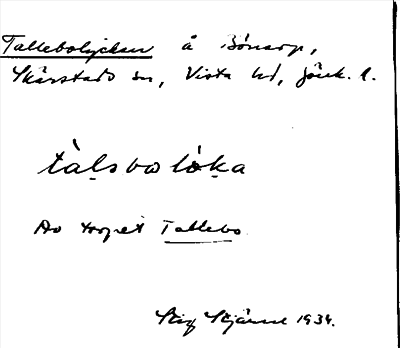 Tallebolyckan å Bönarp,
Skärstads sn, Vista hd, Jönk. l.
tàlsbo lò̭ka
Av torpet Tallebo
Stig Stjärne 1934.